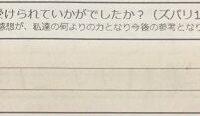 受けられていかがでしたか？（ズバリ1
感想が、私達の何よりの力となり今後の参考となり